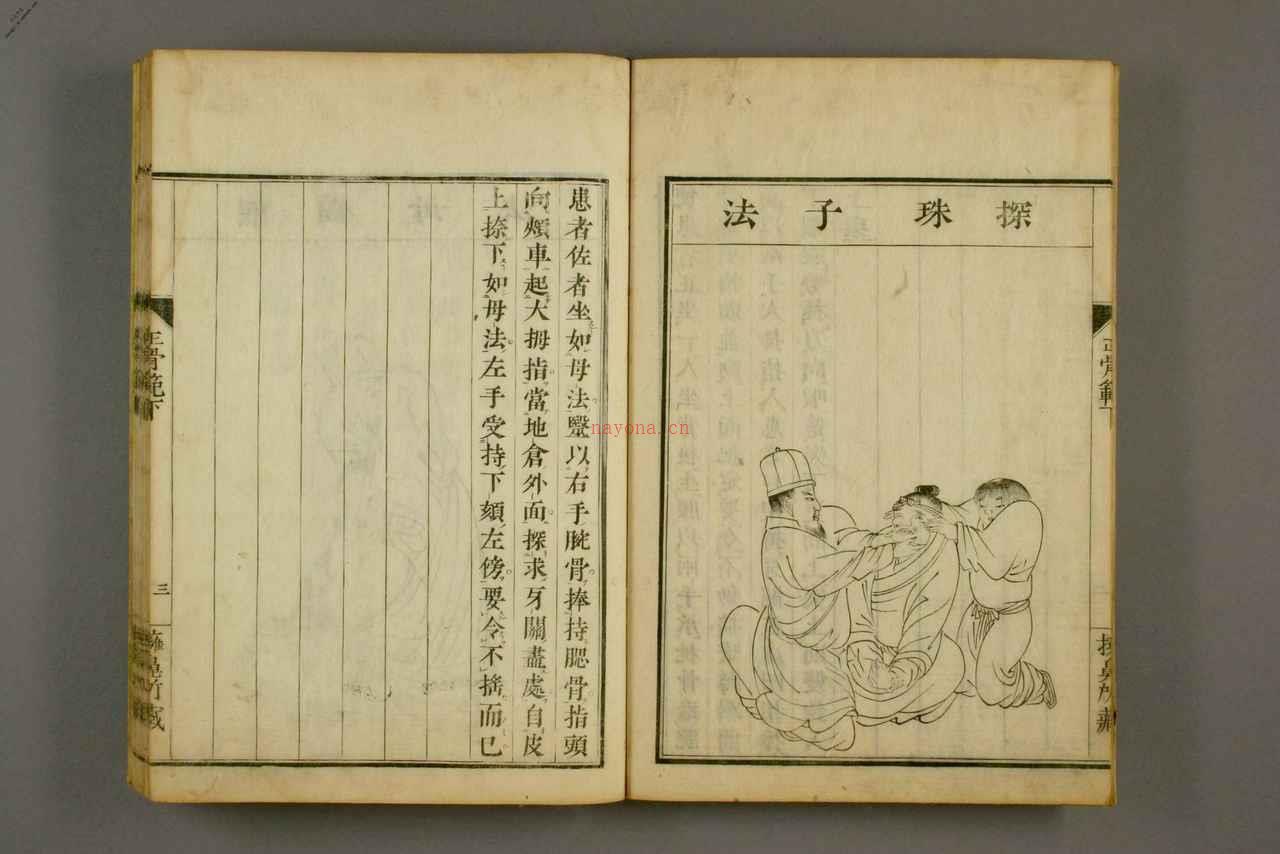 探珠子法
正骨範下
患者佐者坐如母法毉以右手腕骨捧持腮骨指頭
向頰車起大拇指當地倉外面探求牙關盡處自皮
上捺下如母法左手受持下頦左傍要令不捨而已
正骨範下
三
nayona.cn